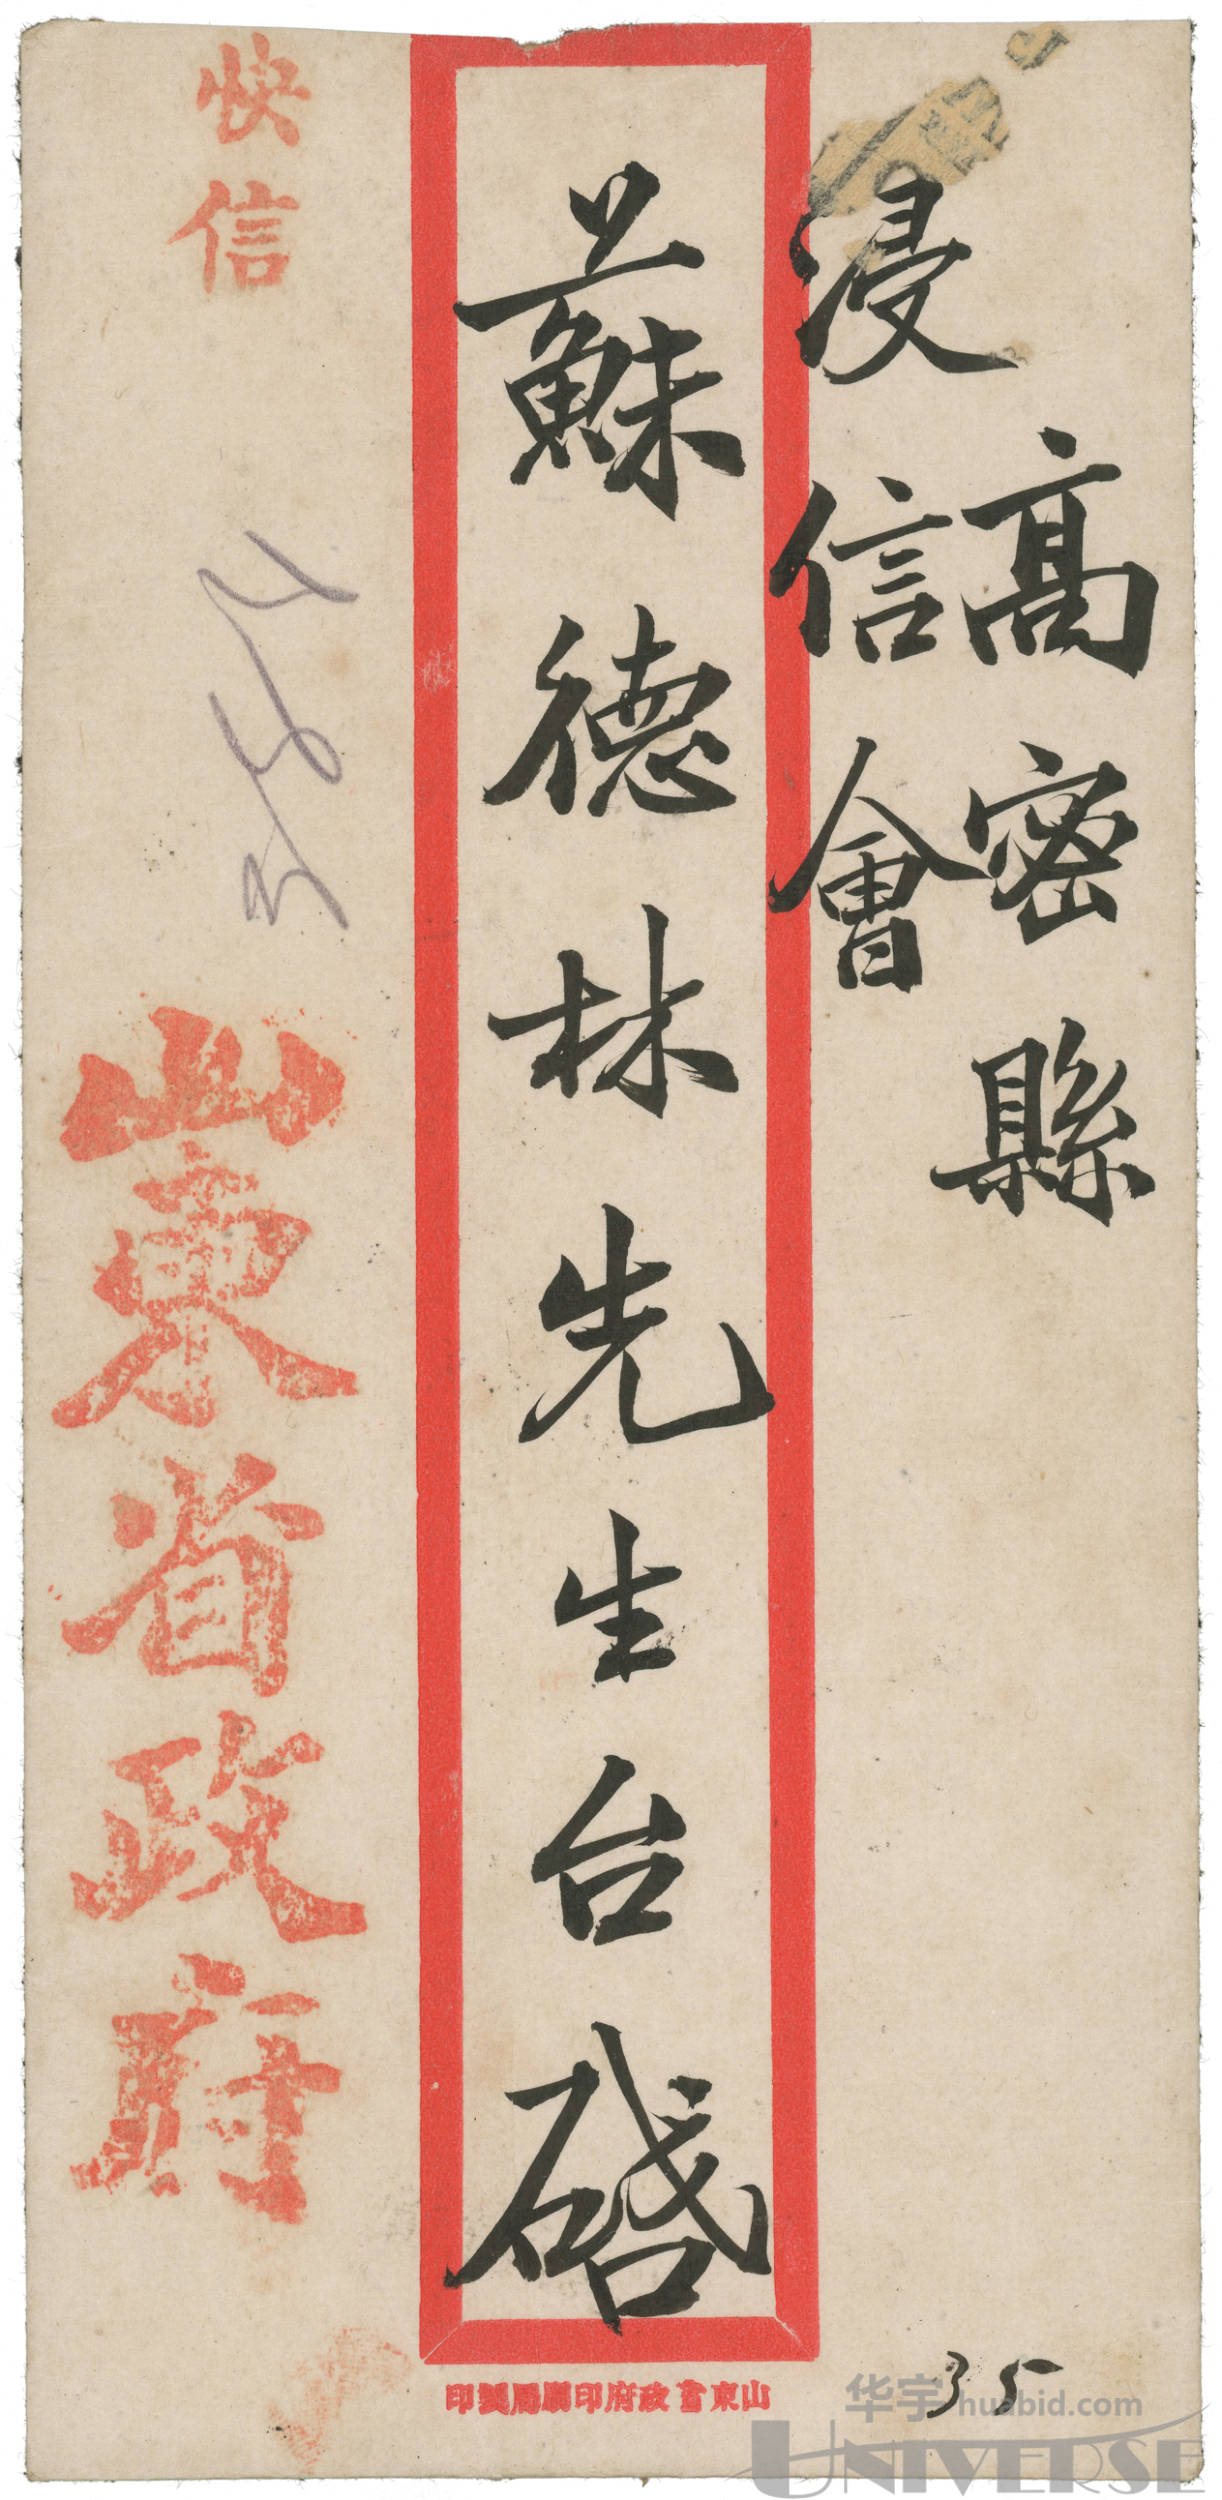 高密縣
浸信會
蘇德林先生台啓
快信
山東省政府
山東省政府印刷局製印
35
华宇 huabid.com
UNIVERSE